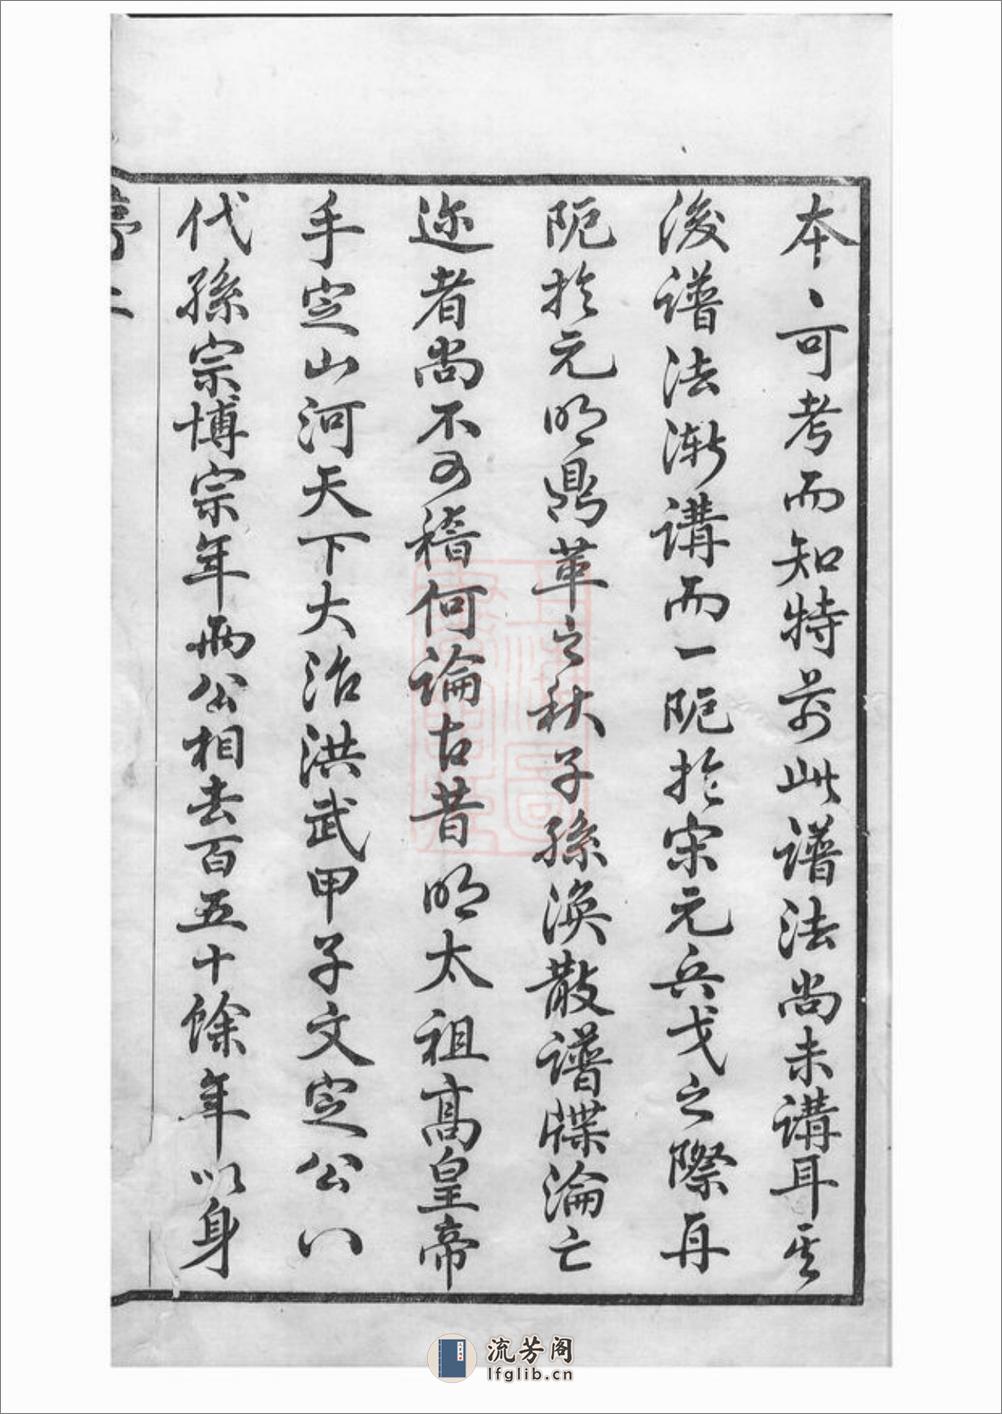 本〻可考而知特前此譜法尚未講耳其
後譜法漸講而一阨於宋元兵戈之際再
阨於元明鼎革之秋子孫渙散譜牒淪亡
迩者尚不可稽何論古昔明太祖高皇帝
手定山河天下大治洪武甲子文定公八
代孫宗博宗年兩公相去百五十餘年以身
流芳阁
lfglib.cn